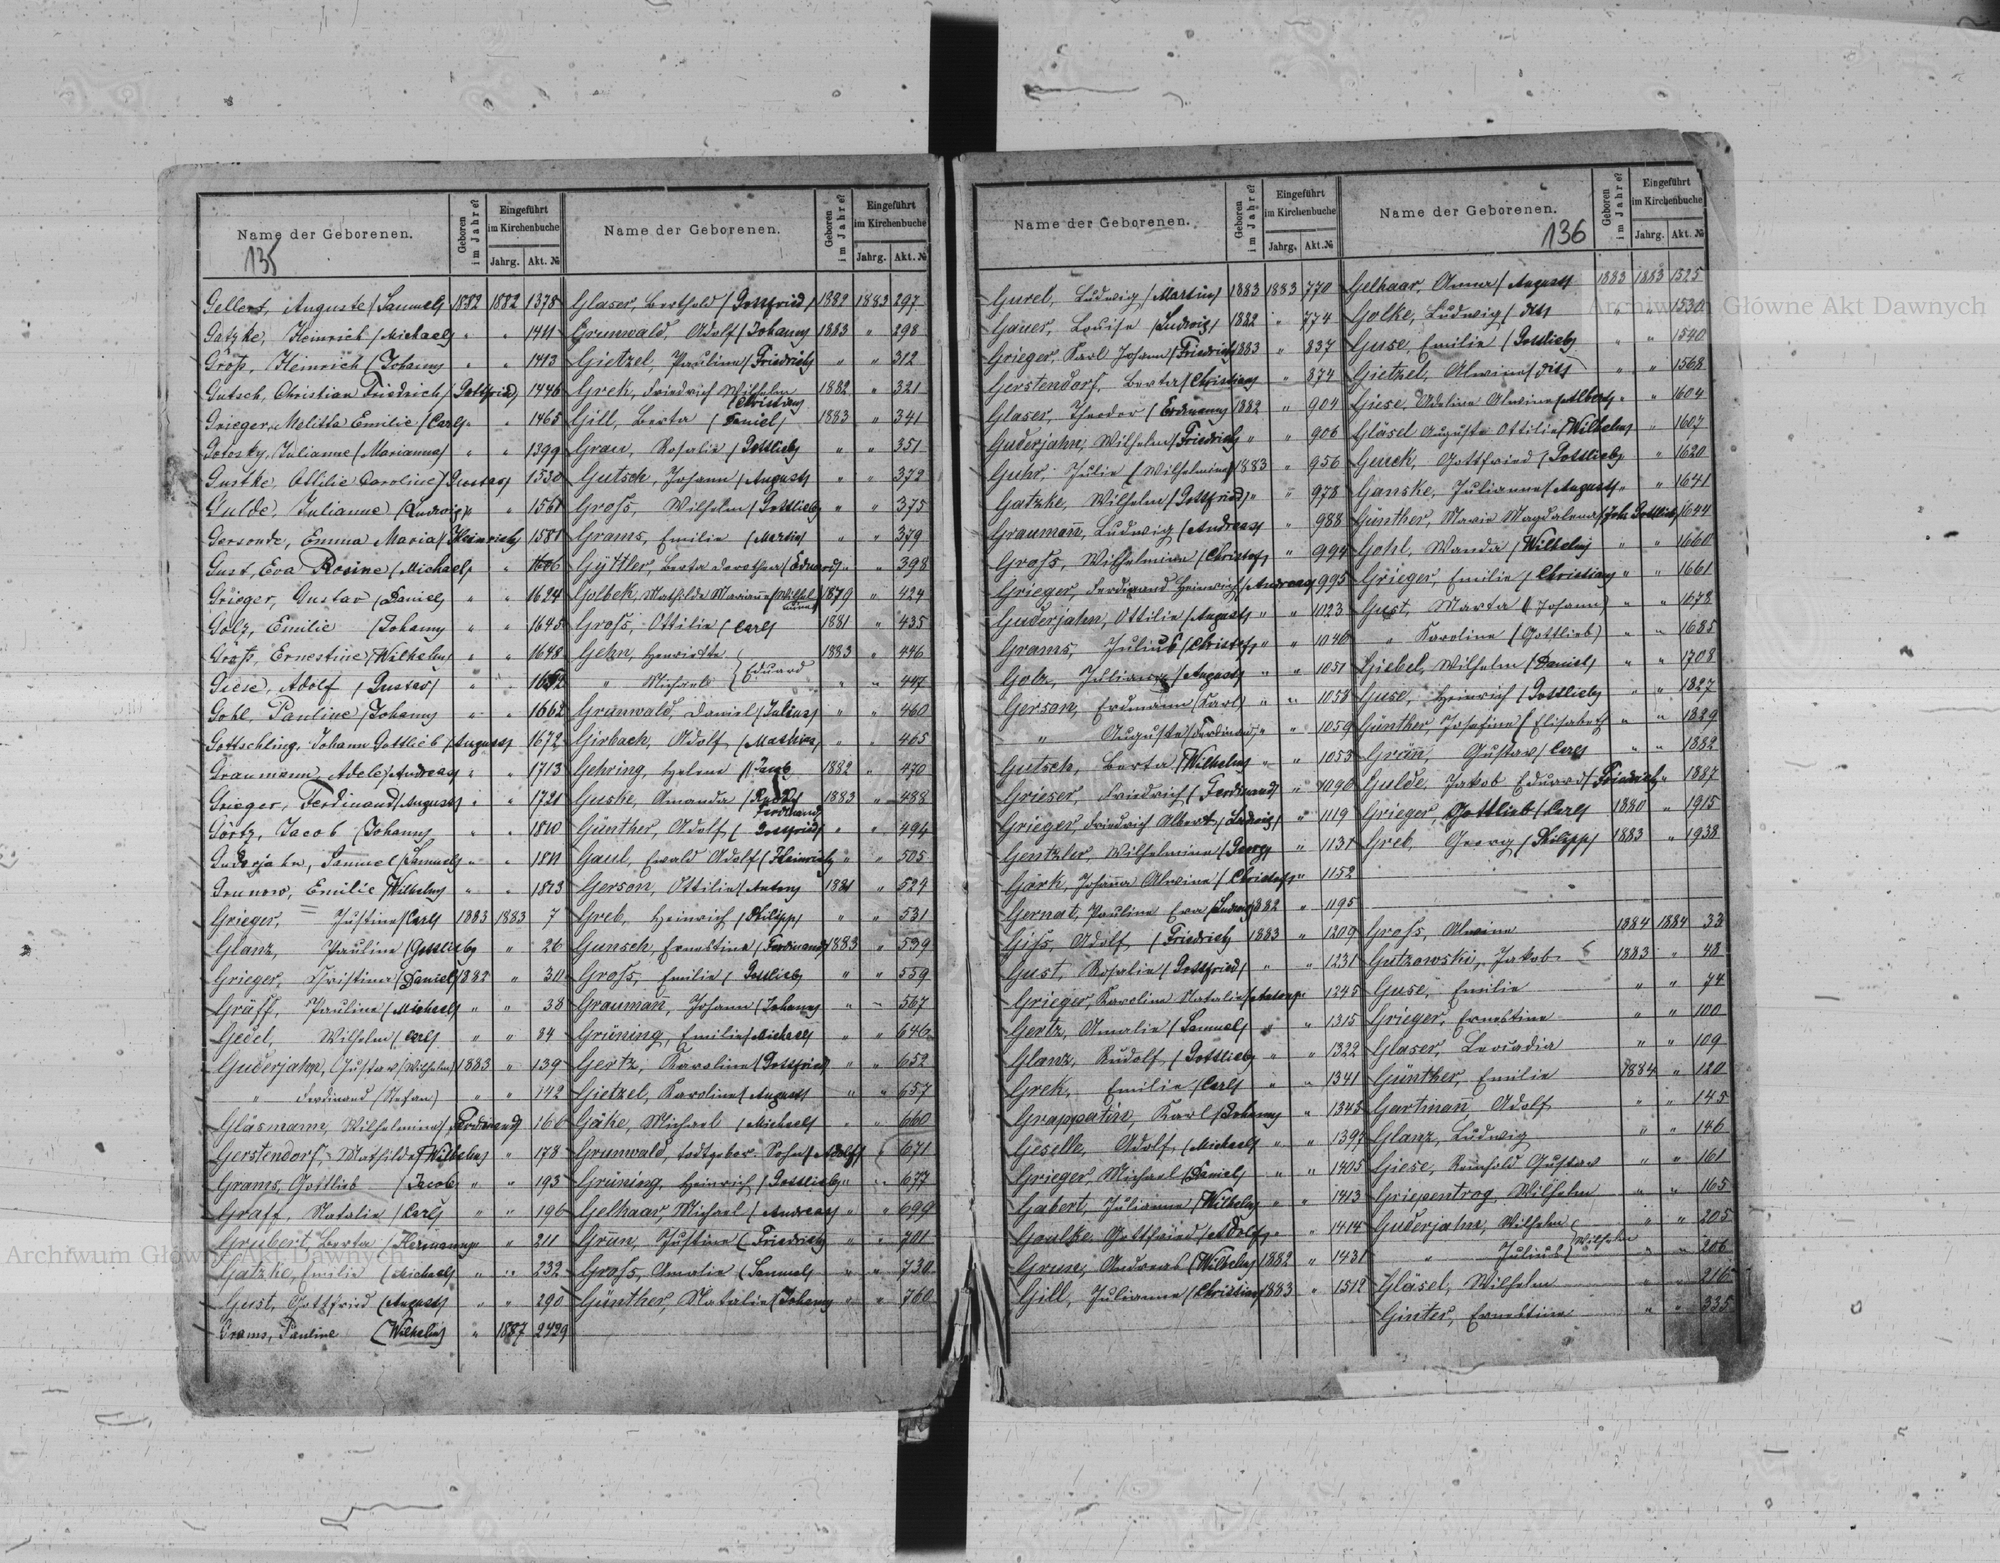 Name der Geborenen.
Geboren im Jahre?
Eingeführt im Kirchenbuche
Jahrg.
Akt. №
135
Gellert, Auguste (Samuel) 1882 1882 1378
Gatzke, Heinrich (Michael) " " 1411
Groß, Heinrich (Johann) " " 1413
Gutsch, Christian Friedrich (Gottfried) 1446
Grieger, Melitta Emilie (Carl) " " 1465
Gorosky, Julianne (Marianna) " " 1399
Gustke, Ottilie Caroline (Gustav) 1530
Gulde, Julianne (Ludwig) " " 1561
Gersonde, Emma Maria (Heinrich) 1581
Gust, Eva Rosine (Michael) " 1606
Grieger, Gustav (Daniel) " " 1624
Golz, Emilie (Johann) " " 1645
Groß, Ernestine (Wilhelm) " " 1648
Giese, Adolf (Gustav) " "
Gohl, Pauline (Johann) " " 1662
Gottschling, Johann Gottlieb (August) 1672
Graumann, Adele (Andreas) " " 1713
Grieger, Ferdinand (August) " " 1721
Görtz, Jacob (Johann) " " 1810
Guderjahn, Samuel (Samuel) " " 1811
Grunow, Emilie (Wilhelm) " " 1813
Grieger, Justine (Carl) 1883 1883 7
Glanz, Pauline (Gottlieb) " 26
Grieger, Christine (Daniel) 1882 " 30
Gräff, Pauline (Michael) " " 38
Gedel, Wilhelm (Carl) " " 84
Guderjahn, Gustav (Wilhelm) 1883 " 139
" Ferdinand (Stefan) " " 142
Gläsmann, Wilhelmine (Ferdinand) 160
Gerstendorf, Mathilde (Wilhelm) " 178
Grams, Gottlieb (Jacob) " 193
Graff, Natalie (Carl) " " 196
Grubert, Berta (Hermann) " " 211
Gatzke, Emilie (Michael) " " 232
Gust, Gottfried (August) " " 290
Grams, Pauline (Wilhelm) " 1887 2429
Name der Geborenen.
Geboren im Jahre?
Eingeführt im Kirchenbuche
Jahrg.
Akt. №
Glaser, Berthold (Gottfried) 1882 1883 297
Grunwald, Adolf (Johann) 1883 " 298
Gietzel, Pauline (Friedrich) " " 312
Grek, Friedrich Wilhelm (Christian) 1882 " 321
Gill, Berta (Daniel) 1883 " 341
Grau, Rosalie (Gottlieb) " " 351
Gutsch, Johann (August) " " 372
Groß, Wilhelm (Gottlieb) " " 375
Grams, Emilie (Martin) " " 379
Berta Dorothea (Eduard) " " 398
Golbek, Mathilde Marianne (Wilhelmine) 1879 " 424
Groß, Ottilie (Carl) 1881 " 435
Gehn, Henriette 1883 " 446
" Michael (Eduard) " " 447
Grunwald, Daniel (Julius) " " 460
Girbach, Adolf (Mathias) " " 465
Gehring, Helene (Jacob) 1882 " 470
Guske, Amanda (Rudolf) 1883 " 488
Günther, Adolf (Ferdinand Gottfried) " " 494
Gaul, Ewald Adolf (Heinrich) " " 505
Gerson, Ottilie (Anton) 1881 " 529
Greb, Heinrich (Philipp) " " 531
Gunsch, Ernestine (Ferdinand) 1883 " 539
Groß, Emilie (Gottlieb) " " 559
Graumann, Johann (Johann) " " 567
Grüning, Emilie (Michael) " " 646
Gertz, Karoline (Gottfried) " " 652
Gietzel, Karoline (August) " " 657
Gäke, Michael (Michael) " " 660
Grunwald, todtgebor. Sohn (Adolf) " 671
Grüning, Heinrich (Gottlieb) " " 677
Gelhaar, Michael (Andreas) " " 699
Grun, Justine (Friedrich) " " 701
Groß, Amalie (Samuel) " " 730
Günther, Natalie (Johann) " " 760
Name der Geborenen.
Geboren im Jahre?
Eingeführt im Kirchenbuche
Jahrg.
Akt. №
Gurel, Ludwig (Martin) 1883 1883 770
Gauer, Louise (Ludwig) 1882 " 774
Grieger, Karl Johann (Friedrich) 1883 " 837
Gerstendorf, Berta (Christian) " 874
Glaser, Theodor (Erdmann) 1882 " 904
Guderjahn, Wilhelm (Friedrich) " " 906
Guhr, Julie (Wilhelmine) 1883 " 956
Gatzke, Wilhelm (Gottfried) " " 978
Graumann, Ludwig (Andreas) " 988
Groß, Wilhelmine (Christof) " 994
Grieger, Ferdinand Heinrich (Andreas) 995
Guderjahn, Ottilie (August) " " 1023
Grams, Julius (Christof) " " 1046
Golz, Julianna (August) " " 1051
Gerson, Erdmann (Karl) " " 1058
" Auguste (Ferdinand) " " 1059
Gutsch, Berta (Wilhelm) " " 1053
Grieser, Friedrich (Ferdinand) " 1090
Grieger, Friedrich Albert (Ludwig) " 1119
Gentzler, Wilhelmine (Georg) " 1131
Gärk, Johanna Alwine (Christof) " 1152
Gernat, Pauline Eva (Ludwig) 1882 " 1195
Giß, Adolf (Friedrich) 1883 " 1209
Gust, Rosalie (Gottfried) " " 1231
Grieger, Karoline Natalie " 1245
Gertz, Amalie (Samuel) " " 1315
Glanz, Rudolf (Gottlieb) " " 1322
Grek, Emilie (Carl) " " 1341
Karl (Johann) " 1345
Geselle, Adolf (Michael) " " 1397
Grieger, Michael (Daniel) " " 1405
Gabert, Julianna (Wilhelm) " " 1413
Gaulke, Gottfried (Adolf) " " 1414
Grun, Andreas (Wilhelm) 1882 " 1431
Gill, Julianna (Christian) 1883 " 1512
Name der Geborenen.
Geboren im Jahre?
Eingeführt im Kirchenbuche
Jahrg.
Akt. №
136
Gelhaar, Anna (August) 1883 1883 1525
Golke, Ludwig " " 1530
Guse, Emilie (Gottlieb) " " 1540
Gietzel, Alwine " " 1568
Giese, Adoline Alwine (Albert) " " 1604
Gläsel Auguste Ottilie (Wilhelm) " 1607
Guuck, Gottfried (Gottlieb) " 1620
Ganske, Julianna (August) " " 1641
Günther, Marie Magdalena (Joh. Gottlieb) 1644
Gohl, Wanda (Wilhelm) " " 1660
Grieger, Emilie (Christian) " " 1661
Gust, Marta (Johann) " " 1678
" Karoline (Gottlieb) " " 1685
Giebel, Wilhelm (Daniel) " " 1708
Guse, Heinrich (Gottlieb) " " 1827
Günther, Josefine (Elisabeth) " " 1829
Grönn, Gustav (Carl) " " 1882
Gulde, Jakob Eduard (Friedrich) " 1887
Grieger, Gottlieb (Carl) 1880 " 1915
Greb, Georg (Philipp) 1883 " 1938
Groß, Alwine 1884 1884 33
Gutzowski, Jakob 1883 " 48
Guse, Emilie " " 74
Grieger, Ernestine " " 100
Glaser, Leocadia " " 109
Günther, Emilie 1884 " 120
Gartmann, Adolf " " 145
Glanz, Ludwig " " 146
Giese, Reinhold Gustav " " 161
Griepentrog, Wilhelm " " 165
Guderjahn, Wilhelm " " 205
" Julius (Wilhelm " " 206
Gläsel, Wilhelm " " 216
Ginter, Ernestine " " 335
Archiwum Główne Akt Dawnych
Archiwum Główne Akt Dawnych